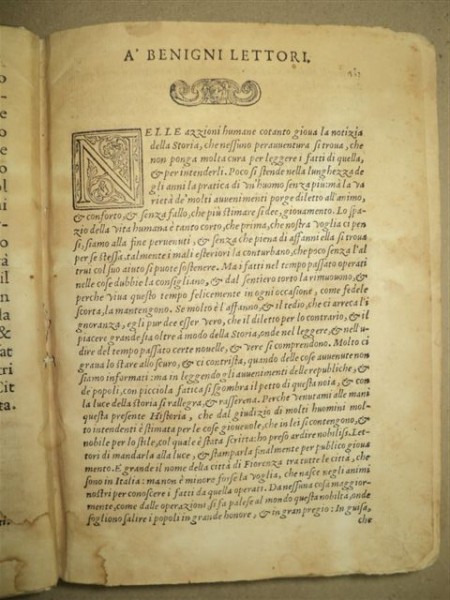 A' BENIGNI LETTORI.
NELLE azzioni humane cotanto gioua la notizia
della Storia, che nessuno perauuentura si troua, che
non ponga molta cura per leggere i fatti di quella,
& per intenderli. Poco si stende nella lunghezza de
gli anni la pratica di vn'huomo senza piu: ma la va
rietà de' molti auuenimenti porge diletto all'animo,
& conforto, & senza fallo, che più stimare si dee, giouamento. Lo spa
zio della vita humana è tanto corto, che prima, che nostra voglia ci pen
si, siamo alla fine peruenuti, & senza che piena di affanni ella si troua
per se stessa, talmente i mali esteriori la conturbano, che poco senza l'al
trui col suo aiuto si puote sostenere. Mai fatti nel tempo passato operati
nelle cose dubbie la consigliano, & dal sentiero torto la rimuouono, &
perche viua questo tempo felicemente in ogni occasione, come fedele
scorta, la mantengono. Se molto è l'affanno, & il tedio, che ci arreca l'i
gnoranza, egli pur dee esser vero, che il diletto per lo contrario, & il
piacere grande sia oltre à modo della Storia, onde nel leggere, & nell'u
dire del tempo passato certe nouelle, & vere si comprendono. Molto ci
graua lo stare allo scuro, & ci contrista, quando delle cose auuenute non
siamo informati: ma in leggendo gli auuenimenti delle republiche, &
de popoli, con picciola fatica si sgombra il petto di questa noia, & con
la luce della storia si rallegra, & rasserena. Perche venutami alle mani
questa presente Historia, che dal giudizio di molti huomini mol-
to intendenti è stimata per le cose gioueuole, che in lei si contengono, &
nobile per lo stile, col quale è stata scritta: ho preso ardire nobilissi. Let-
tori di mandarla alla luce, & stamparla finalmente per publico gioua
mento. E grande il nome della città di Fiorenza tra tutte le città, che
sono in Italia: ma non è minore forse la voglia, che nasce negli animi
nostri per conoscere i fatti da quella operati. Da nessuna cosa maggior-
mente, come dalle operazioni, si fa palese al mondo questa nobiltà, onde
sogliono salire i popoli in grande honore, & in gran pregio: In guisa,
che